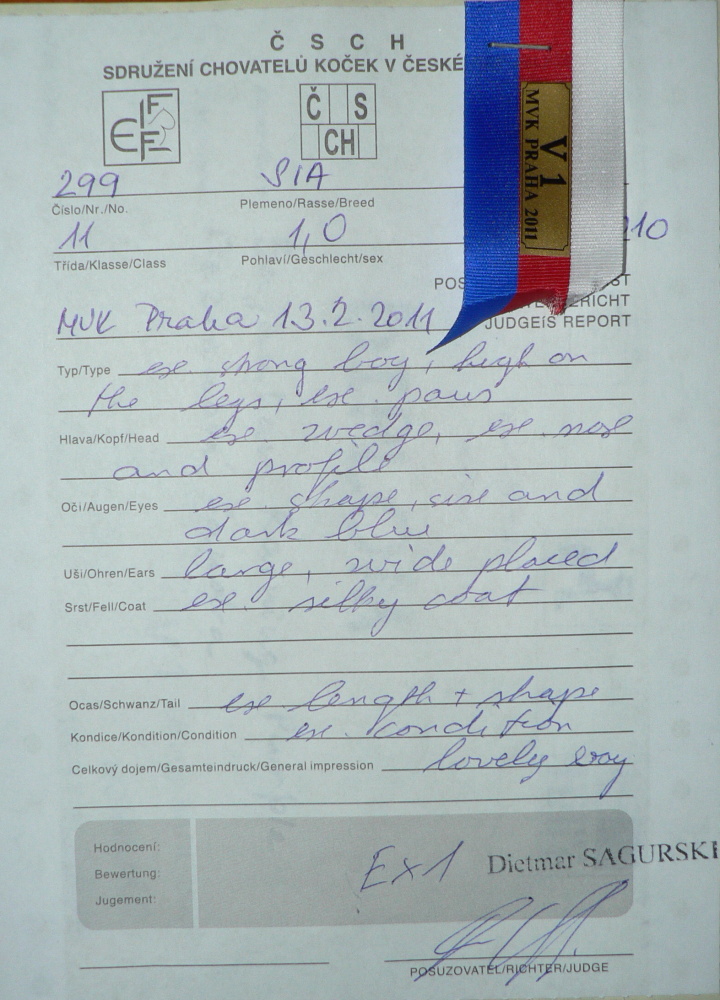 Č S C H
SDRUŽENÍ CHOVATELŮ KOČEK V ČESKÉ
FIFE
Č S CH
V 1
MVK PRAHA 2011
299 SIA
Číslo/Nr./No. Plemeno/Rasse/Breed
11 1,0 210
Třída/Klasse/Class Pohlaví/Geschlecht/sex
MVK Praha 13.2.2011
JUDGEÍS REPORT
Typ/Type ex. strong boy, high on
the legs, ex. paws
Hlava/Kopf/Head ex. wedge, ex. nose
and profile
Oči/Augen/Eyes ex. shape, size and
dark blue
Uši/Ohren/Ears large, wide placed
Srst/Fell/Coat ex. silky coat
Ocas/Schwanz/Tail ex length + shape
Kondice/Kondition/Condition ex. condition
Celkový dojem/Gesamteindruck/General impression lovely boy
Hodnocení:
Bewertung:
Jugement:
Ex1 Dietmar SAGURSKI
POSUZOVATEL/RICHTER/JUDGE